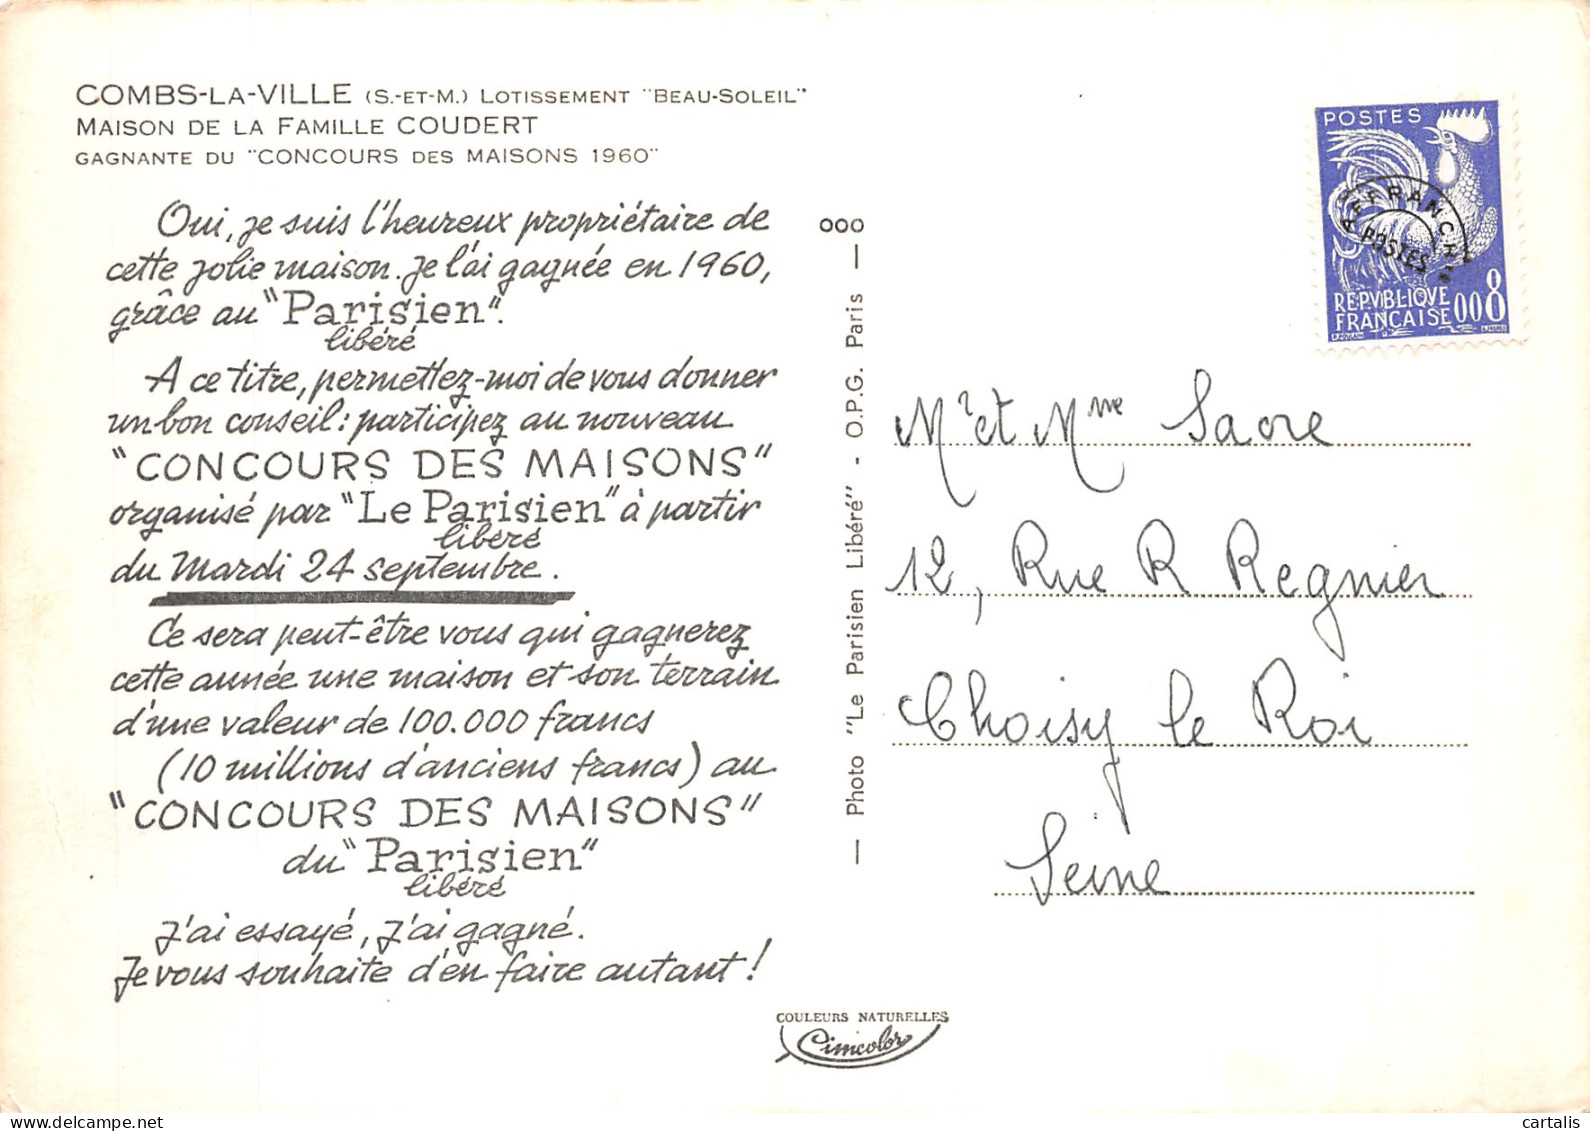 COMBS-LA-VILLE (S.-ET-M.) LOTISSEMENT "BEAU-SOLEIL"
MAISON DE LA FAMILLE COUDERT
GAGNANTE DU "CONCOURS DES MAISONS 1960"
Oui, je suis l'heureux propriétaire de
cette jolie maison. Je l'ai gagnée en 1960,
grâce au "Parisien".
libéré
A ce titre, permettez-moi de vous donner
un bon conseil : participez au nouveau
"CONCOURS DES MAISONS"
organisé par "Le Parisien" à partir
libéré
du Mardi 24 septembre.
Ce sera peut-être vous qui gagnerez
cette année une maison et son terrain
d'une valeur de 100.000 francs
(10 millions d'anciens francs) au
"CONCOURS DES MAISONS"
du "Parisien"
libéré
J'ai essayé, J'ai gagné.
Je vous souhaite d'en faire autant !
COULEURS NATURELLES
Cimcolor
000
— Photo "Le Parisien Libéré" - O.P.G. Paris —
POSTES
AFFRANCHts
POSTES
REPVBLIQVE
FRANÇAISE 008
Mr et Mme Sacre
12, Rue R Regnier
Choisy le Roi
Seine
cartalis